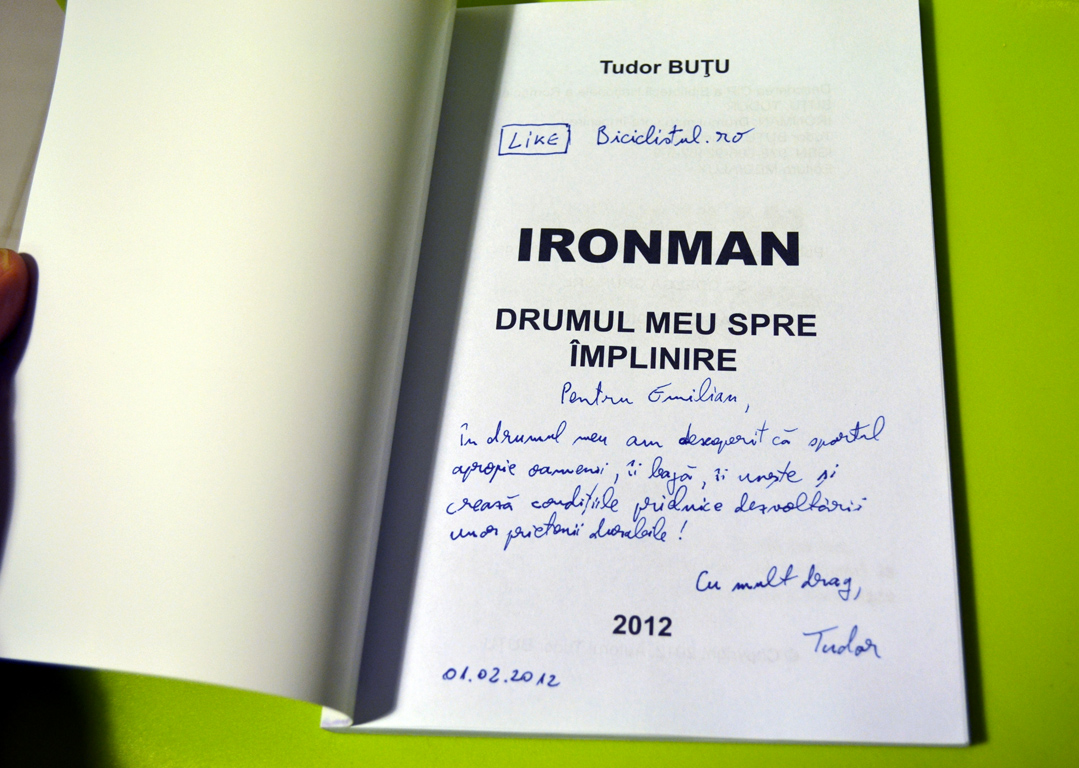 Tudor BUŢU
LIKE Biciclistul.ro
IRONMAN
DRUMUL MEU SPRE
ÎMPLINIRE
Pentru Emilian,
în drumul meu am descoperit că sportul
apropie oamenii, îi leagă, îi unește și
crează condițiile prielnice dezvoltării
unor prietenii durabile!
Cu mult drag,
2012
Tudor
01.02.2012